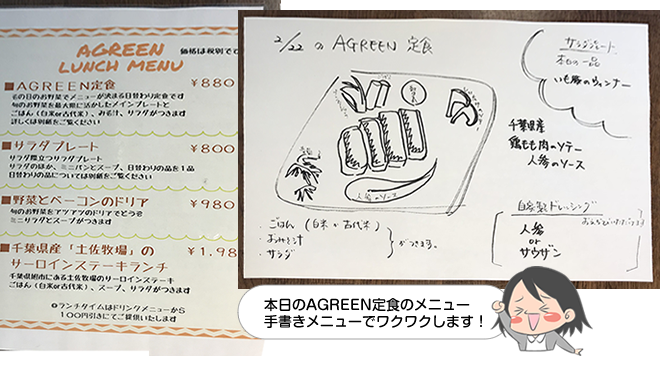 AGREEN
LUNCH MENU
価格は税別で
■AGREEN定食 ¥880
旬のお野菜を最大限に活かしたメインプレートと
ごはん(白米or古代米)、みそ汁、サラダがつきます
詳しくは別紙をご覧ください
■サラダプレート ¥800
サラダ際立つサラダプレート
サラダのほか、ミニパンとスープ、日替わりの品を1品
日替わりの品については別紙をご覧ください
■野菜とベーコンのドリア ¥980
旬のお野菜をアツアツのドリアでどうぞ
ミニサラダとスープがつきます
■千葉県産「土佐牧場」の ¥1,98
サーロインステーキランチ
千葉県旭市にある土佐牧場のサーロインステーキ
ごはん(白米or古代米)、スープ、サラダがつきます
ランチタイムはドリンクメニューから
100円引きにてご提供いたします
2/22 の AGREEN 定食
人参のソース
・ごはん (白米 or 古代米)
・おみそ汁
・サラダ
がつきます。
サラダプレート
本日の一品
いも豚のウィンナー
千葉県産
鶏もも肉のソテー
人参のソース
自家製ドレッシング
人参
or
サウザン
本日のAGREEN定食のメニュー
手書きメニューでワクワクします!